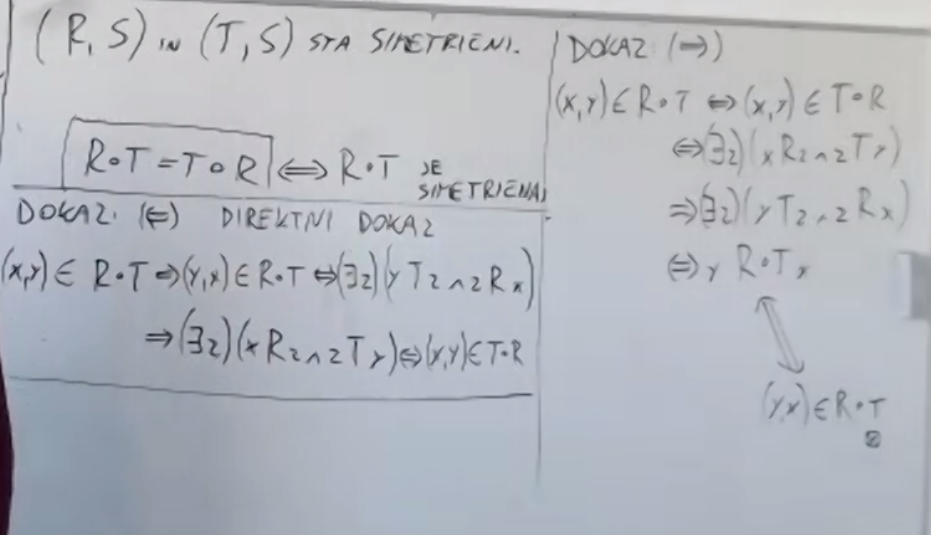 (R, S) IN (T, S) STA SIMETRIČNI.
R∘T = T∘R ⇔ R∘T JE
SIMETRIČNA
DOKAZ: (⇐) DIREKTNI DOKAZ
(x,y) ∈ R∘T ⇒ (y,x) ∈ R∘T ⇔ (∃z)(y T z ∧ z R x)
⇒ (∃z)(x R z ∧ z T y) ⇔ (x,y) ∈ T∘R
DOKAZ: (⇒)
(x,y) ∈ R∘T ⇔ (x,y) ∈ T∘R
⇔ (∃z)(x R z ∧ z T y)
⇒ (∃z)(y T z ∧ z R x)
⇔ y R∘T x
⇕
(y,x) ∈ R∘T